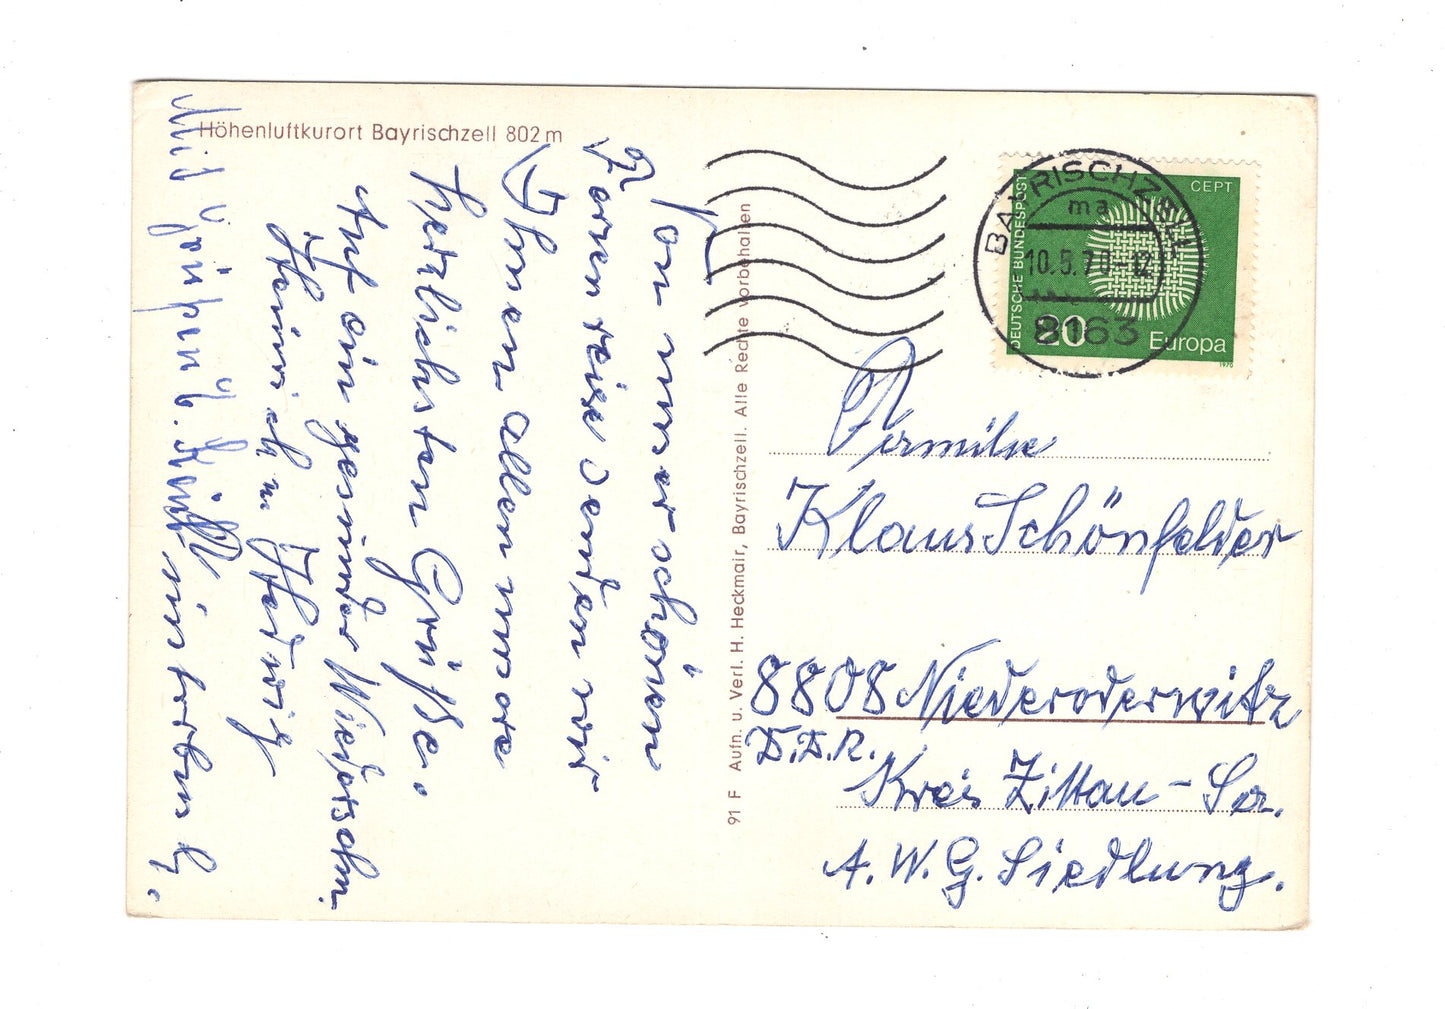 Höhenluftkurort Bayrischzell 802 m
Von unser schönen
Ferienreise senden wir
Ihnen allen unsere
herzlichsten Grüße.
Auf ein gesundes Wiedersehn.
Heinrich u. Hedwig
Mit
91 F Aufn. u. Verl. H. Heckmair, Bayrischzell. Alle Rechte vorbehalten
BAYRISCHZELL
ma
10.5.70-12
8163
DEUTSCHE BUNDESPOST
CEPT
20
Europa
1970
Familie
Klaus Schönfelder
8808 Niederoderwitz
D.D.R.
Kreis Zittau - Sa.
A.W.G. Siedlung.